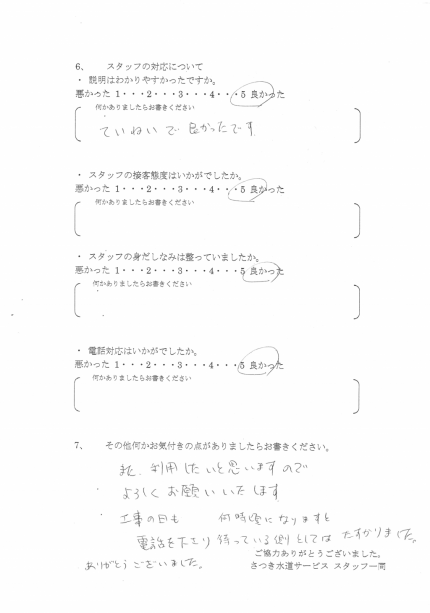 6、　スタッフの対応について
・ 説明はわかりやすかったですか。
悪かった 1・・・2・・・3・・・4・・・5 良かった
何かありましたらお書きください
ていねいで 良かったです
・ スタッフの接客態度はいかがでしたか。
悪かった 1・・・2・・・3・・・4・・・5 良かった
何かありましたらお書きください
・ スタッフの身だしなみは整っていましたか。
悪かった 1・・・2・・・3・・・4・・・5 良かった
何かありましたらお書きください
・ 電話対応はいかがでしたか。
悪かった 1・・・2・・・3・・・4・・・5 良かった
何かありましたらお書きください
7、　その他何かお気付きの点がありましたらお書きください。
又、利用したいと思いますので
よろしくお願いいたします
工事の日も　何時頃になりますと
電話を下さり 待っている側としては たすかりました。
ありがとうございました。
ご協力ありがとうございました。
さつき水道サービス スタッフ一同